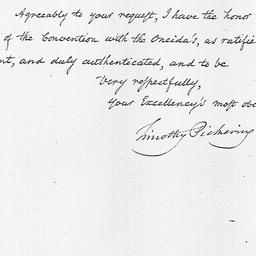 Agreeably to your request, I have the honor
of the Convention with the Oneida's, as ratifie
nt, and duly authenticated, and to be
very respectfully,
your Excellency's most obe
Timothy Pickering